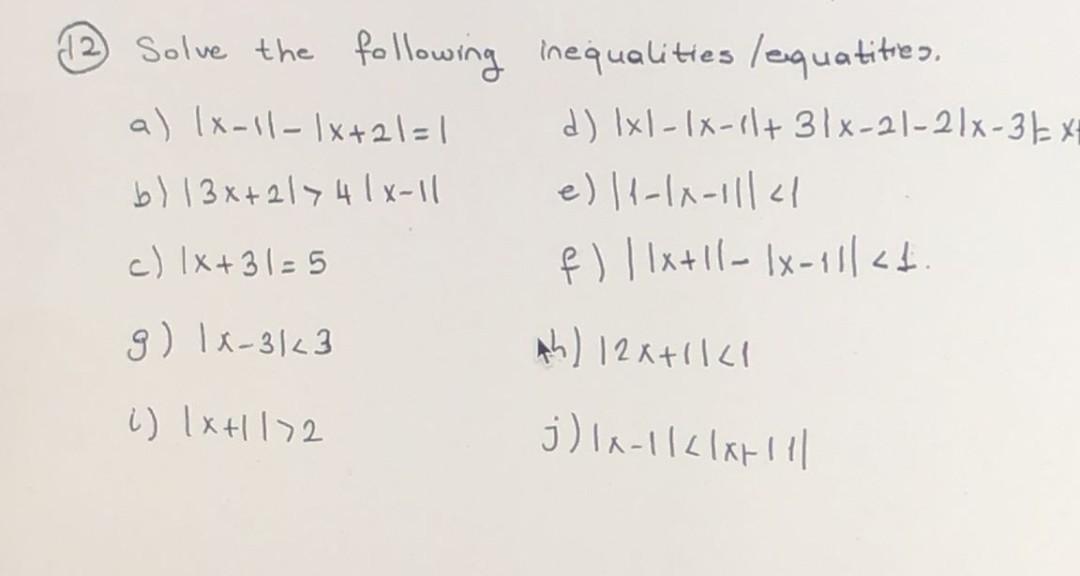 12 Solve the following inequalities / equatities.
a) |x-1| - |x+2| = 1 d) |x| - |x-1| + 3|x-2| - 2|x-3| = x+
b) |3x+2| > 4 |x-1| e) |1-|x-1|| < 1
c) |x+3| = 5 f) ||x+1| - |x-1|| < 1.
g) |x-3| < 3 h) |2x+1| < 1
i) |x+1| > 2 j) |x-1| < |x+1|